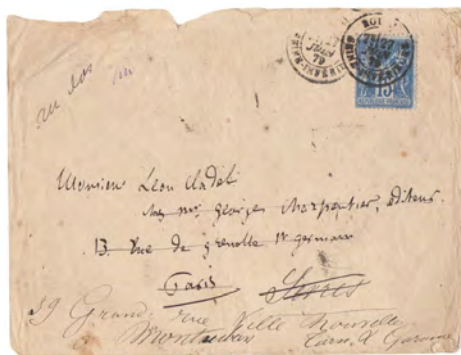 au dos
ROU
27
JUIN
79
SEINE-INFÉRIEURE
15
REPUBLIQUE FRANÇAISE
Monsieur Léon Cladel
chez Mr. Georges Charpentier, éditeur.
13. Rue de Grenelle St germain
Paris Sèvres
59 Grand-rue Ville Nouvelle
à Montauban Tarn & Garonne